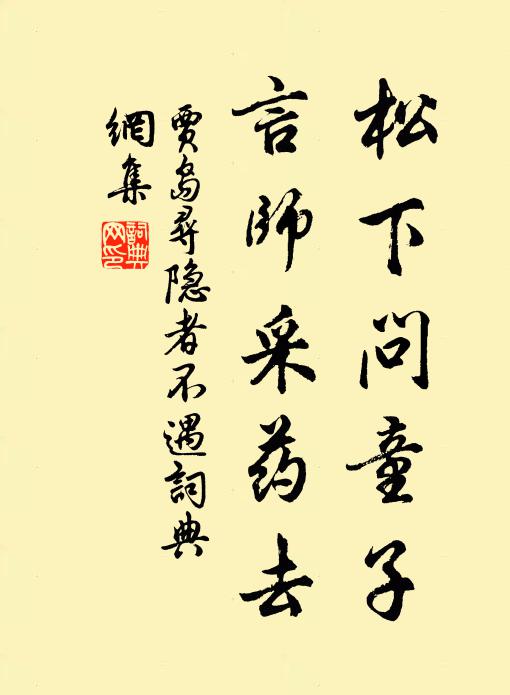 松下问童子
言师采药去
贾岛寻隐者不遇詞典
網集
詞典
网印